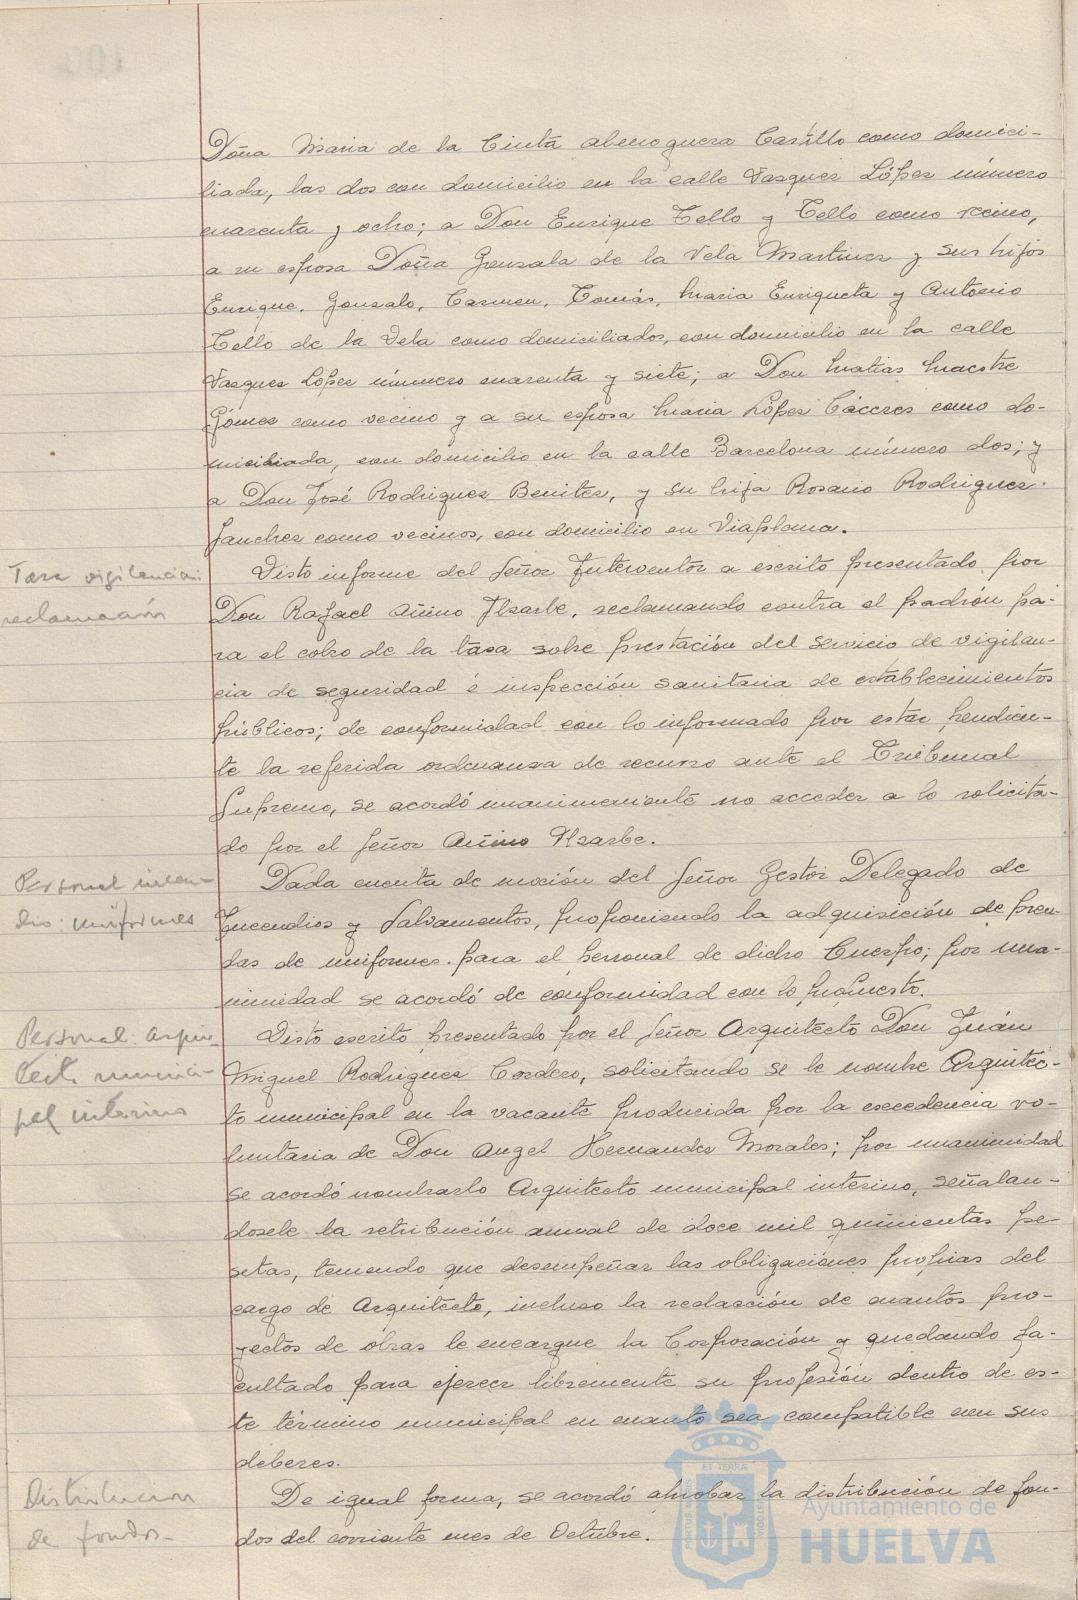 Doña Maria de la Cinta Almoguera Castillo como domici-
liada, las dos con domicilio en la calle Vazquez López número
cuarenta y ocho; a Don Enrique Tello y Tello como vecino,
a su esposa Doña Gonzala de la Vela Martinez y sus hijos
Enrique, Gonzalo, Carmen, Tomás, Maria Enriqueta y Antonio
Tello de la Vela como domiciliados, con domicilio en la calle
Vazquez López número cuarenta y siete; a Don Matias Maestre
Gómez como vecino y a su esposa Maria López Cáceres como do-
miciliada, con domicilio en la calle Barcelona número dos; y
a Don José Rodriguez Benitez, y su hija Rosario Rodriguez
Sanchez como vecinos, con domicilio en Viaplana.
Tasa vigilancia:
reclamación
Visto informe del Señor Interventor a escrito presentado por
Don Rafael Añino Ilzarbe, reclamando contra el padrón pa-
ra el cobro de la tasa sobre prestación del servicio de vigilan-
cia de seguridad é inspección sanitaria de establecimientos
públicos; de conformidad con lo informado por estar pendien-
te la referida ordenanza de recurso ante el Tribunal
Supremo, se acordó unanimemente no acceder a lo solicita-
do por el Señor Añino Ilzarbe.
Personal incen-
dio: uniformes
Dada cuenta de moción del Señor Gestor Delegado de
Incendios y Salvamentos, proponiendo la adquisición de pren-
das de uniformes para el personal de dicho Cuerpo; por una-
nimidad se acordó de conformidad con lo propuesto.
Personal: Arqui-
tecto munici-
pal interino
Visto escrito presentado por el Señor Arquitecto Don Juán
Miguel Rodriguez Cordero, solicitando se le nombre Arquitec-
to municipal en la vacante producida por la excedencia vo-
luntaria de Don Angel Hernandez Morales; por unanimidad
se acordó nombrarlo Arquitecto municipal interino, señalan-
dosele la retribución anual de doce mil quinientas pe-
setas, teniendo que desempeñar las obligaciones propias del
cargo de Arquitecto, incluso la redacción de cuantos pro-
yectos de obras le encargue la Corporación y quedando fa-
cultado para ejercer libremente su profesión dentro de es-
te término municipal en cuanto sea compatible con sus
deberes.
Distribucion
de fondos
De igual forma, se acordó aprobar la distribución de fon-
dos del corriente mes de Octubre.
Ayuntamiento de
HUELVA